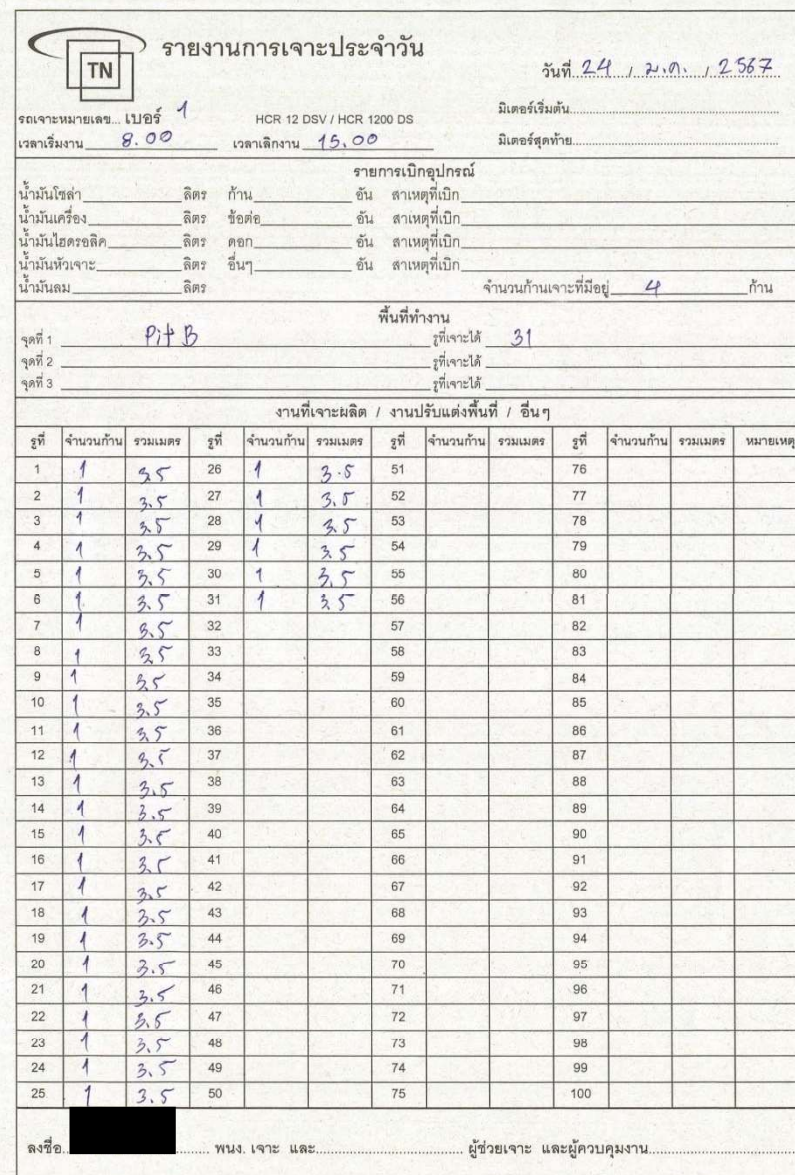 TN
รายงานการเจาะประจำวัน
วันที่ 24 / ม.ค. / 2567
รถเจาะหมายเลข... เบอร์ 1 HCR 12 DSV / HCR 1200 DS มิเตอร์เริ่มต้น
เวลาเริ่มงาน 8.00 เวลาเลิกงาน 15.00 มิเตอร์สุดท้าย
รายการเบิกอุปกรณ์
น้ำมันโซล่า ลิตร ก้าน อัน สาเหตุที่เบิก
น้ำมันเครื่อง ลิตร ข้อต่อ อัน สาเหตุที่เบิก
น้ำมันไฮดรอลิค ลิตร ดอก อัน สาเหตุที่เบิก
น้ำมันหัวเจาะ ลิตร อื่นๆ อัน สาเหตุที่เบิก
น้ำมันลม ลิตร จำนวนก้านเจาะที่มีอยู่ 4 ก้าน
พื้นที่ทำงาน
จุดที่ 1 Pit B รูที่เจาะได้ 31
จุดที่ 2 รูที่เจาะได้
จุดที่ 3 รูที่เจาะได้
งานที่เจาะผลิต / งานปรับแต่งพื้นที่ / อื่นๆ
รูที่ จำนวนก้าน รวมเมตร รูที่ จำนวนก้าน รวมเมตร รูที่ จำนวนก้าน รวมเมตร รูที่ จำนวนก้าน รวมเมตร หมายเหตุ
1 1 3.5 26 1 3.5 51 76
2 1 3.5 27 1 3.5 52 77
3 1 3.5 28 1 3.5 53 78
4 1 3.5 29 1 3.5 54 79
5 1 3.5 30 1 3.5 55 80
6 1 3.5 31 1 3.5 56 81
7 1 3.5 32 57 82
8 1 3.5 33 58 83
9 1 3.5 34 59 84
10 1 3.5 35 60 85
11 1 3.5 36 61 86
12 1 3.5 37 62 87
13 1 3.5 38 63 88
14 1 3.5 39 64 89
15 1 3.5 40 65 90
16 1 3.5 41 66 91
17 1 3.5 42 67 92
18 1 3.5 43 68 93
19 1 3.5 44 69 94
20 1 3.5 45 70 95
21 1 3.5 46 71 96
22 1 3.5 47 72 97
23 1 3.5 48 73 98
24 1 3.5 49 74 99
25 1 3.5 50 75 100
ลงชื่อ พนง. เจาะ และ ผู้ช่วยเจาะ และผู้ควบคุมงาน